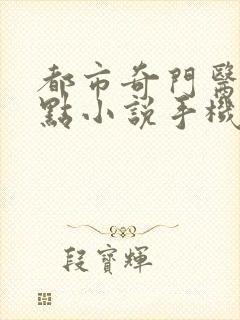 都市奇門醫
點小說手機
段寶輝